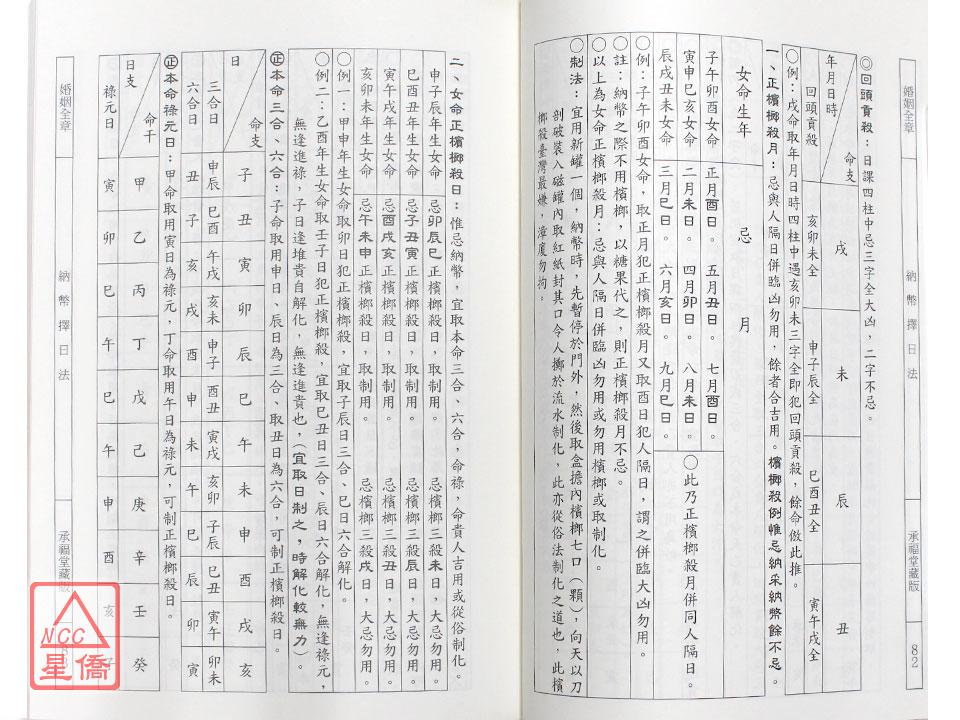 婚姻全章
納幣擇日法
承福堂藏版
82
◎回頭貢殺：日課四柱中忌三字全大凶，二字不忌。
年月日時
命支
戌
未
辰
丑
回頭貢殺
亥卯未全
申子辰全
巳酉丑全
寅午戌全
○例：戌命取年月日時四柱中遇亥卯未三字全即犯回頭貢殺，餘命倣此推。
一、正檳榔殺月：忌與人隔日併臨凶勿用，餘者合吉用。檳榔殺例惟忌納采納幣餘不忌。
女命生年
忌月
子午卯酉女命
正月酉日。
五月丑日。
七月酉日。
寅申巳亥女命
二月未日。
四月卯日。
八月未日。
辰戌丑未女命
三月巳日。
六月亥日。
九月巳日。
○此乃正檳榔殺月併同人隔日。
○例：子午卯酉女命，取正月犯正檳榔殺月又取酉日犯人隔日，謂之併臨大凶勿用。
○註：納幣之際不用檳榔，以糖果代之，則正檳榔殺月不忌。
○以上為女命正檳榔殺月：忌與人隔日併臨凶勿用或勿用檳榔或取制化。
○制法：宜用新罐一個，納幣時，先暫停於門外，然後取盒擔內檳榔七口（顆），向天以刀
剖破裝入磁罐內取紅紙封其口令人擲於流水制化，此亦從俗法制化之道也，此檳
榔殺臺灣最嫌，漳廈勿拘。
二、女命正檳榔殺日：惟忌納幣，宜取本命三合、六合，命祿，命貴人吉用或從俗制化。
申子辰年生女命
忌卯辰巳正檳榔殺日，取制用。
忌檳榔三殺未日，大忌勿用。
巳酉丑年生女命
忌子丑寅正檳榔殺日，取制用。
忌檳榔三殺辰日，大忌勿用。
寅午戌年生女命
忌酉戌亥正檳榔殺日，取制用。
忌檳榔三殺丑日，大忌勿用。
亥卯未年生女命
忌午未申正檳榔殺日，取制用。
忌檳榔三殺戌日，大忌勿用。
○例一：甲申年生女命取卯日犯正檳榔殺，宜取子辰日三合、巳日六合解化。
○例二：乙酉年生女命取壬子日犯正檳榔殺，宜取巳丑日三合、辰日六合解化，無逢祿元，
無逢進祿，子日逢堆貴自解化，無逢進貴也，（宜取日制之，時解化較無力）。
㊣本命三合、六合：子命取用申日、辰日為三合、取丑日為六合，可制正檳榔殺日。
日
命支
子
丑
寅
卯
辰
巳
午
未
申
酉
戌
亥
三合日
申辰
巳酉
午戌
亥未
申子
酉丑
寅戌
亥卯
子辰
巳丑
寅午
卯未
六合日
丑
子
亥
戌
酉
申
未
午
巳
辰
卯
寅
㊣本命祿元日：甲命取用寅日為祿元，丁命取用午日為祿元，可制正檳榔殺日。
日支
命干
甲
乙
丙
丁
戊
己
庚
辛
壬
癸
祿元日
寅
卯
巳
午
巳
午
申
酉
亥
子
婚姻全章
納幣擇日法
承福堂藏版
NCC
星僑